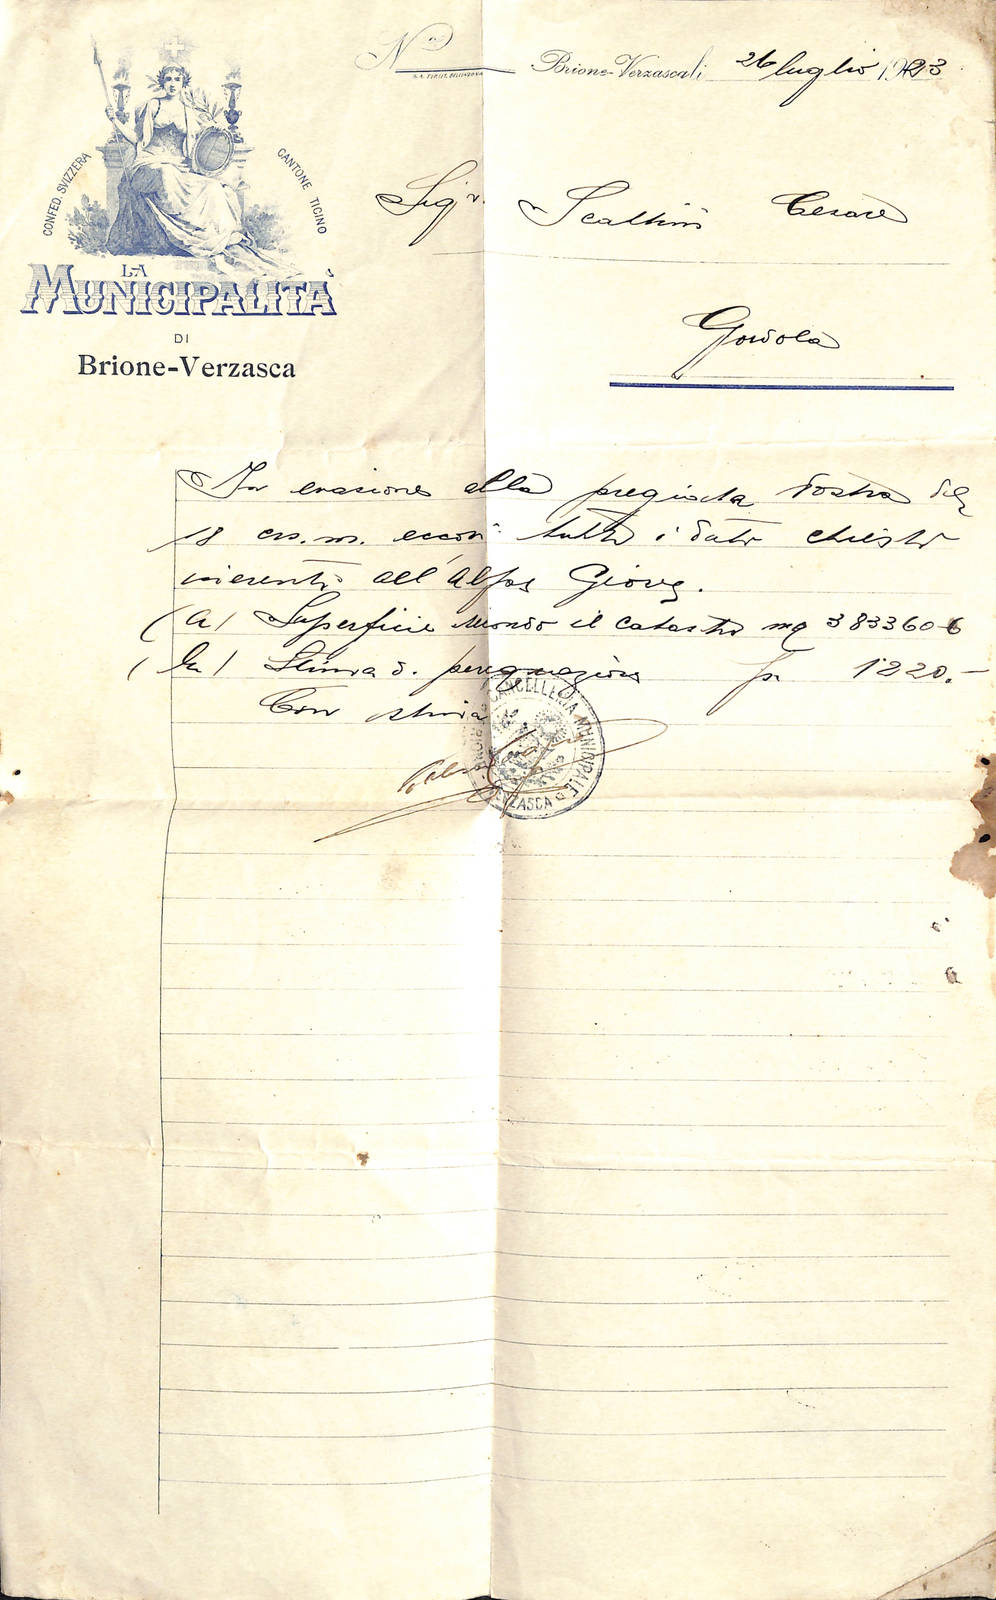 CONFED. SVIZZERA
CANTONE TICINO
LA
MUNICIPALITÀ
DI
Brione-Verzasca
No
Brione-Verzasca li 26 luglio 1923
Sigr. Scattini Cesare
Gordola
In evasione alla pregiata Vostra del
18 crs. m. eccovi tutti i dati chiesti
inerenti all'Alpe
(a) Superficie secondo il catasto mq 383360
(b) Stima di perequazione fr. 1220.-
Con stima
CANCELLERIA MUNICIPALE
VERZASCA